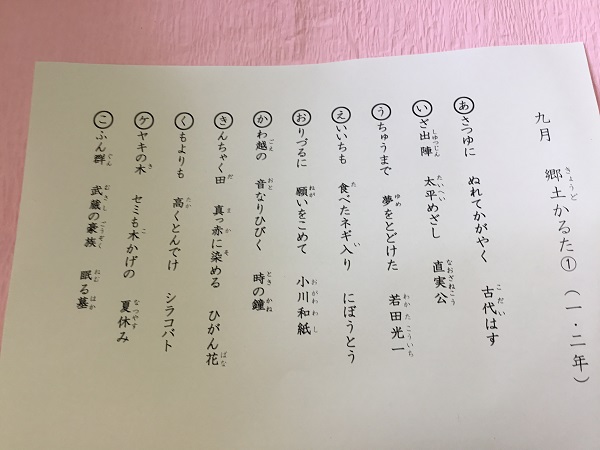 九月 郷土かるた① (一・二年)
あさつゆに ぬれてかがやく 古代はす
いざ出陣 太平めざし 直実公
うちゅうまで 夢をとどけた 若田光一
えいいちも 食べたネギ入り にぼうとう
おりづるに 願いをこめて 小川和紙
かわ越の 音なりひびく 時の鐘
きんちゃく田 真っ赤に染める ひがん花
くもよりも 高くとんでけ シラコバト
ケヤキの木 セミも木かげの 夏休み
こふん群 武蔵の豪族 眠る墓